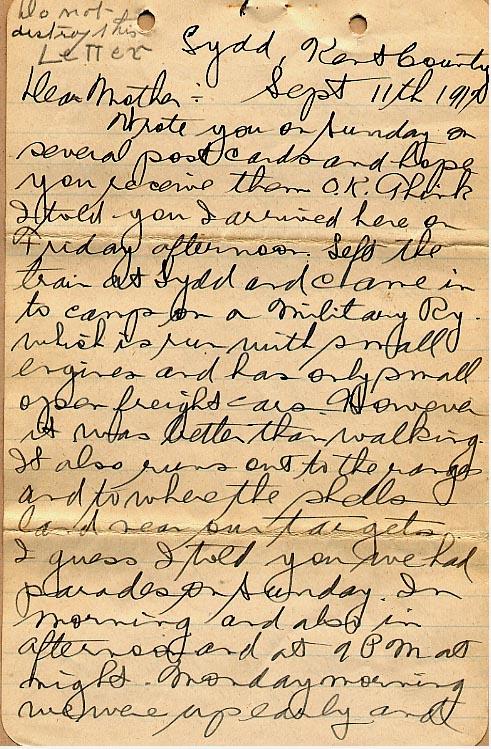 Do not
destroy this
Letter
Lydd, Kent County
Dear Mother: Sept 11th 191
Wrote you on Sunday on
several post cards and hope
you receive them O.K. Think
I told you I arrived here on
Friday afternoon. Left the
train at Lydd and came in
to camp on a Military Ry.
which is run with small
engines and has only small
open freight cars. However
it was better than walking.
It also runs out to the ranges
and to where the shells
land near our targets.
I guess I told you we had
parades on Sunday. In
morning and also in
afternoon and at 9 PM at
night. Monday morning
we were up early and